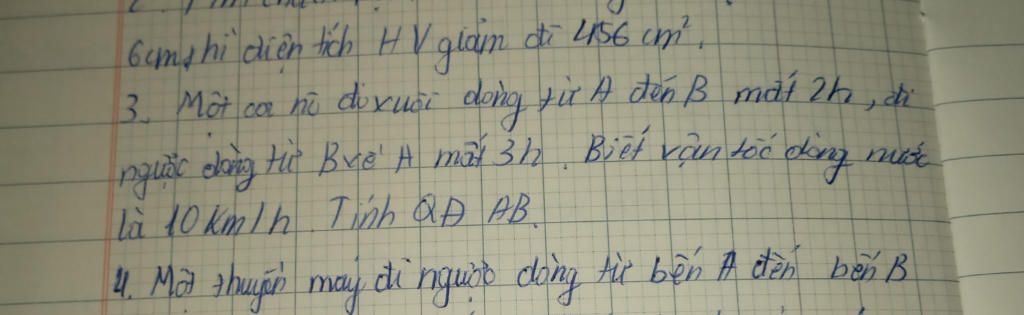 6cm thì diện tích HV giảm đi 456 cm².
3. Một ca nô đi xuôi dòng từ A đến B mất 2h, đi
ngược dòng từ B về A mất 3h. Biết vận tốc dòng nước
là 10 km/h. Tính QĐ AB.
4. Một thuyền máy đi ngược dòng từ bến A đến bến B